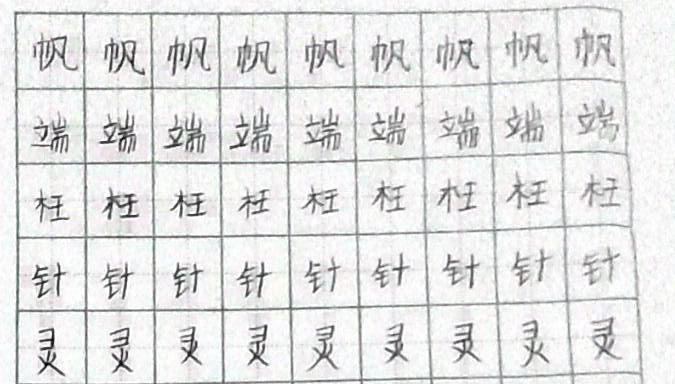 帆 帆 帆 帆 帆 帆 帆 帆 帆
端 端 端 端 端 端 端 端 端
枉 枉 枉 枉 枉 枉 枉 枉 枉
针 针 针 针 针 针 针 针 针
灵 灵 灵 灵 灵 灵 灵 灵 灵